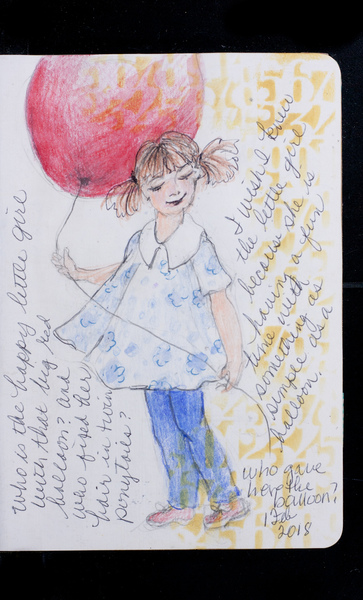 who is the happy little girl
with that big red
balloon? and
who fixed her
hair in twin
ponytails?
I wish I knew
the little girl
because she is
having a fun
time with
something as
simple as a
balloon.
who gave
her the
balloon?
1 Feb
2018